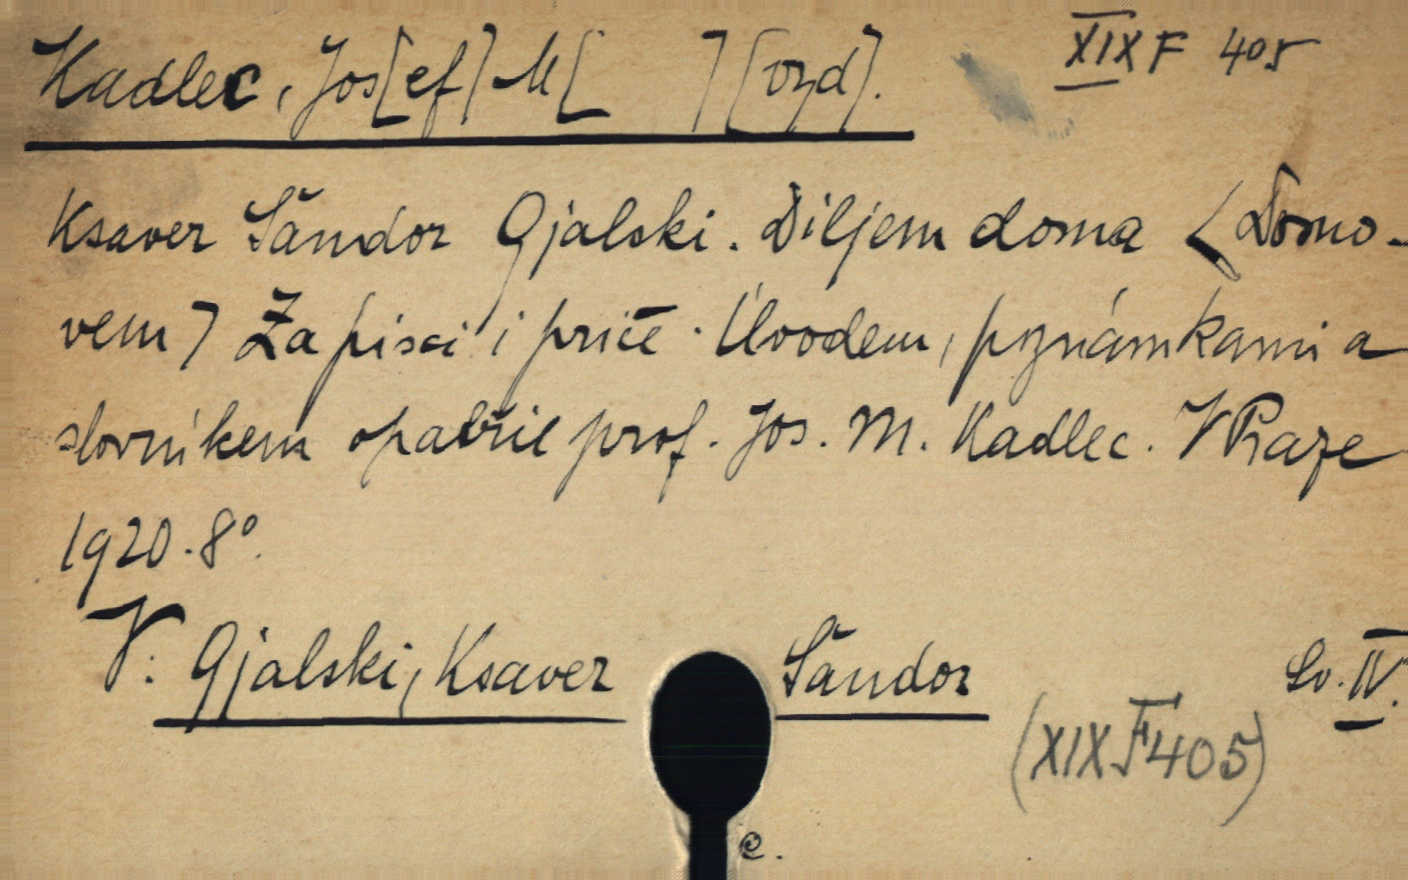 Kadlec, Jos[ef] M[ ] [ozd]. XIX F 405
Ksaver Šandor Gjalski. Diljem doma <Domo-
vem> Zapisci i priče. Úvodem, poznámkami a
slovníkem opatřil prof. Jos. M. Kadlec. V Praze
1920. 8°.
V: Gjalski, Ksaver Šandor Sv. IV.
(XIX F 405)
e.